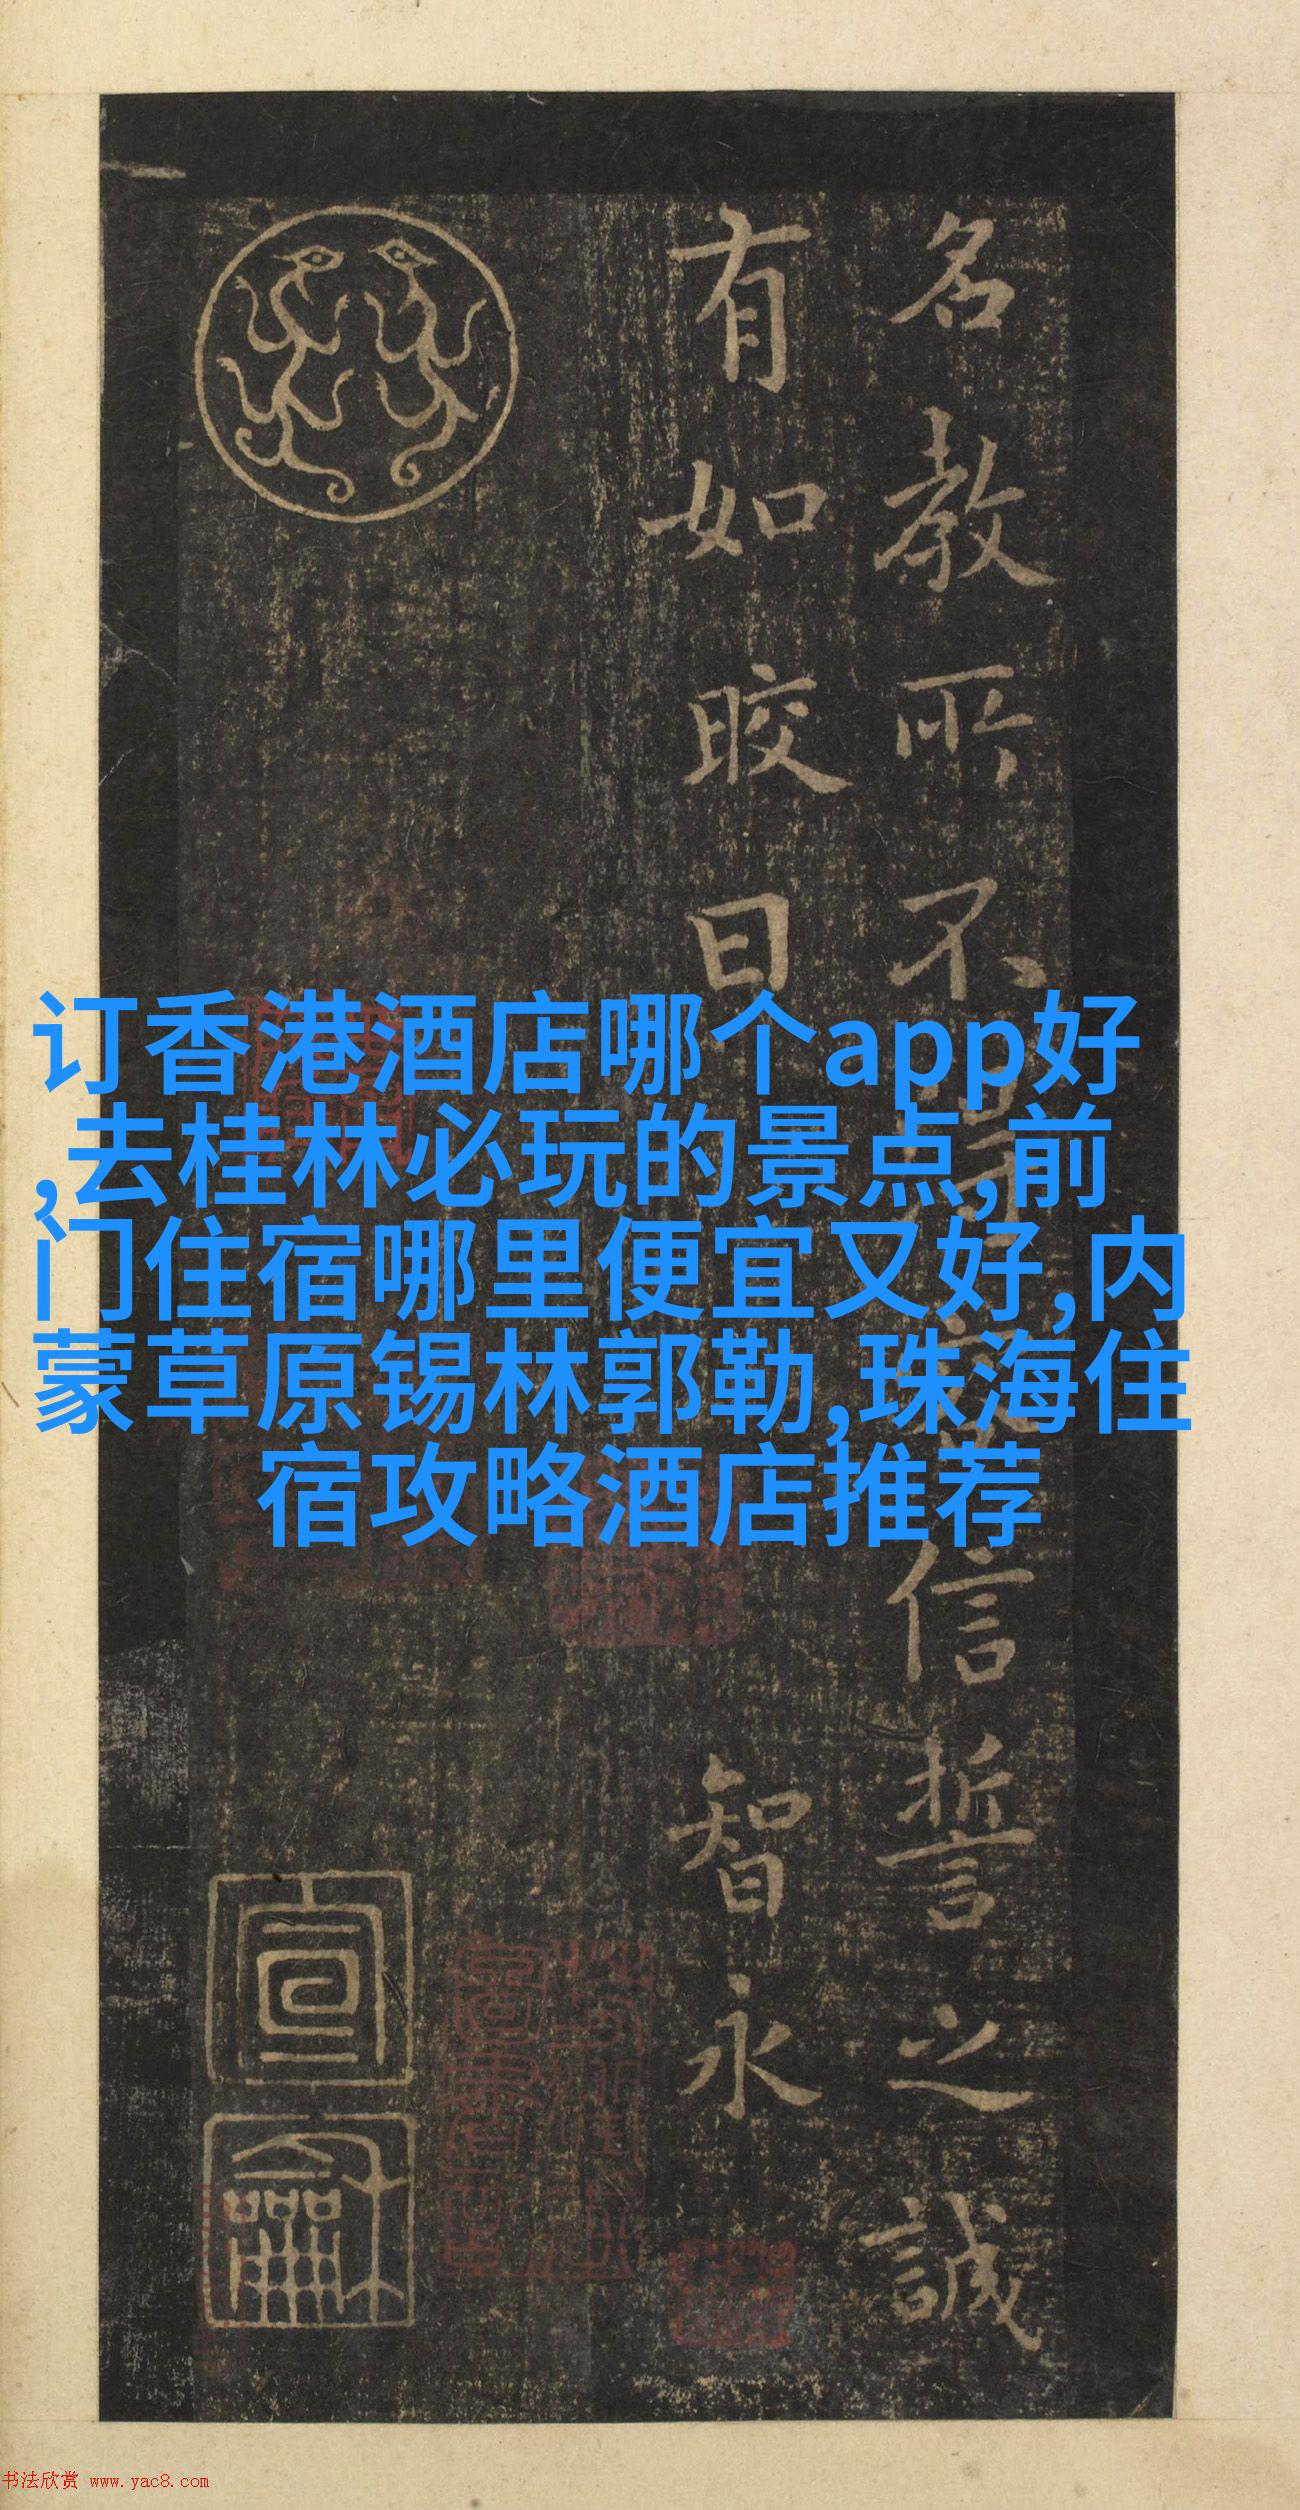 名教所不得容信誓之誠
有如晈日 智永
宣
龢
订香港酒店哪个app好
,去桂林必玩的景点,前
门住宿哪里便宜又好,内
蒙草原锡林郭勒,珠海住
宿攻略酒店推荐
书法欣赏 www.yac8.com